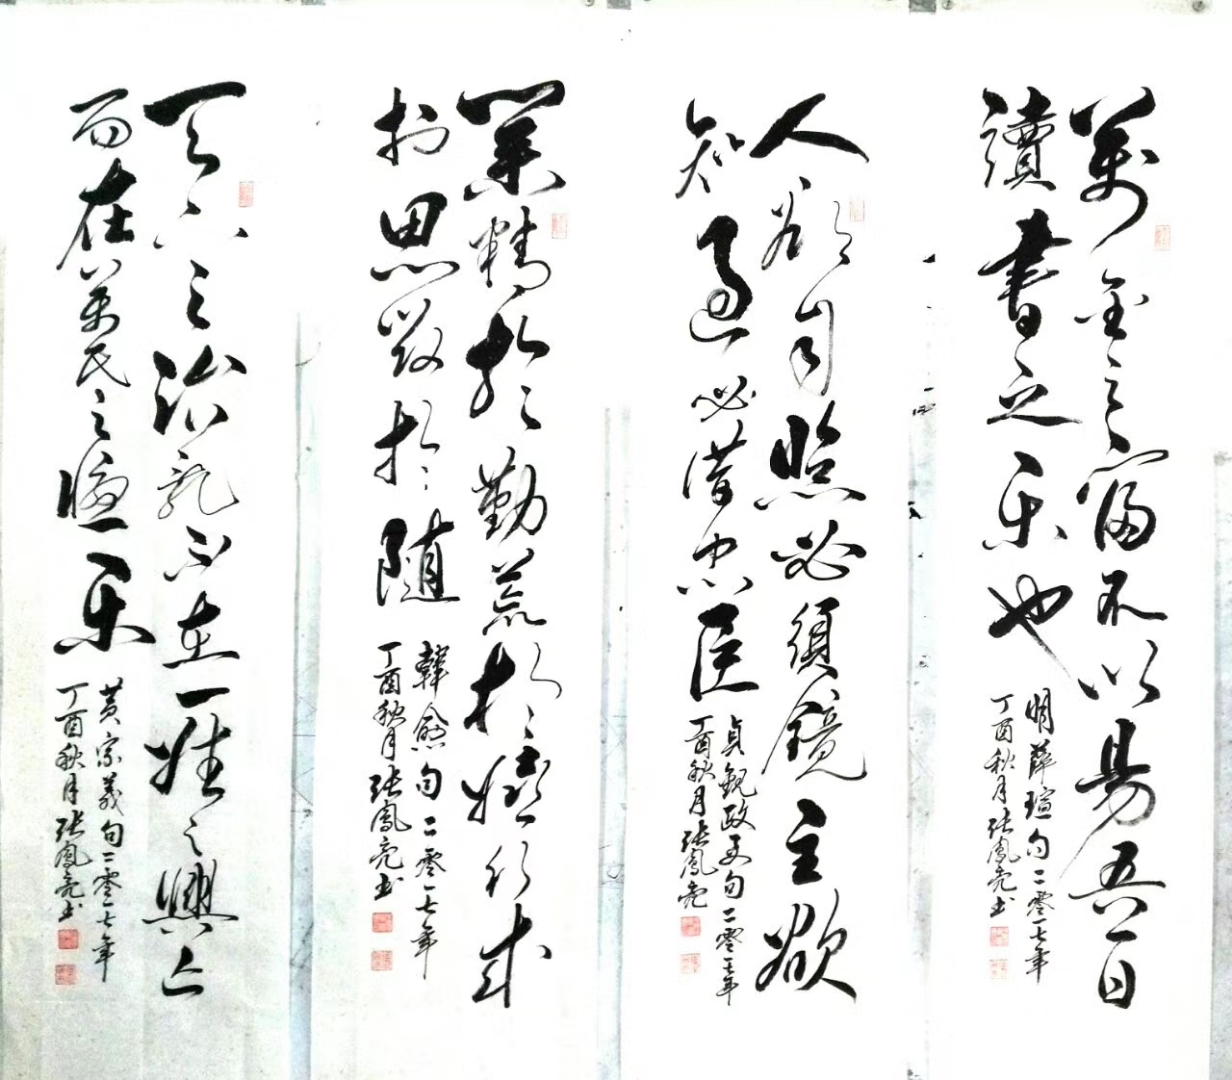 萬金之富不以易吾一日
讀書之樂也
明薛瑄句二零一七年
丁酉秋月張鳳亮书
人欲自照必須鏡主欲
知過必借忠臣
貞觀政要句二零一七年
丁酉秋月張鳳亮
業精於勤荒於嬉行成
於思毀於隨
韓愈句二零一七年
丁酉秋月張鳳亮书
天下之治亂不在一姓之興亡
而在萬民之憂樂
黄宗羲句二零一七年
丁酉秋月張鳳亮书